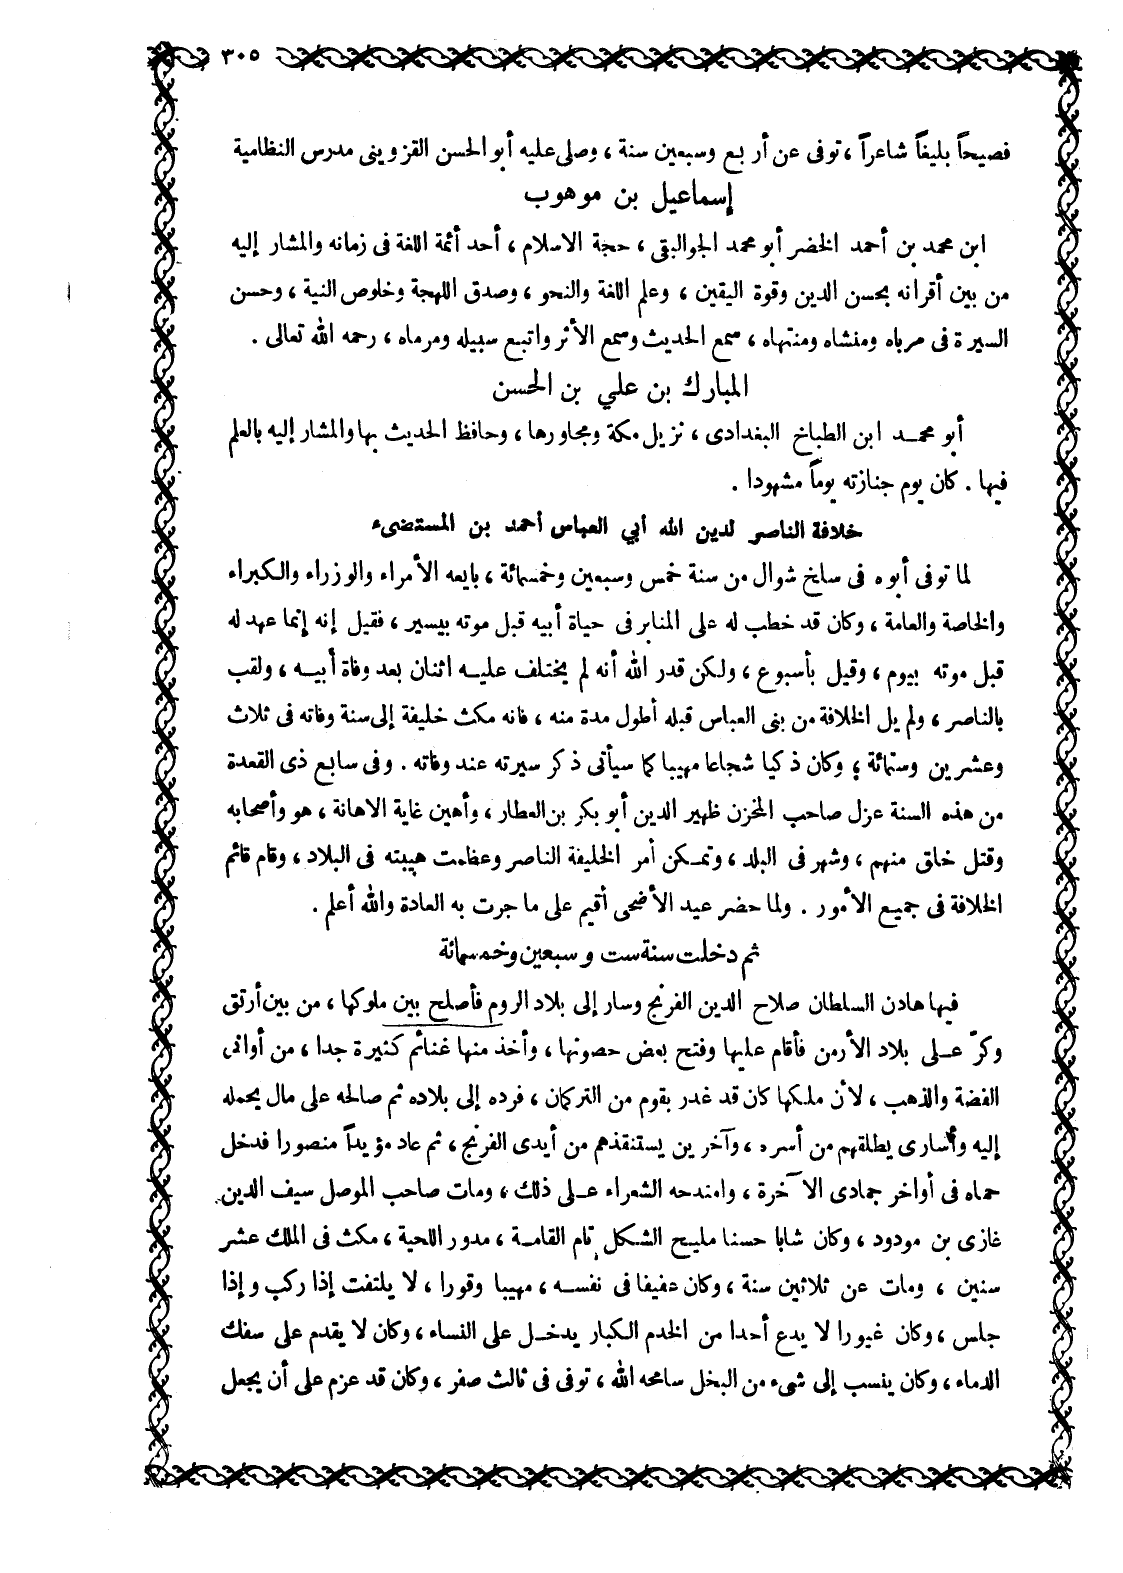 ٣٠٥
فصيحاً بليغاً شاعراً ، توفى عن أربع وسبعين سنة ، وصلى عليه أبو الحسن القزوينى مدرس النظامية
إسماعيل بن موهوب
ابن محمد بن أحمد الخضر أبو محمد الجواليقى ، حجة الاسلام ، أحد أئمة اللغة فى زمانه والمشار إليه
من بين أقرانه بحسن الدين وقوة اليقين ، وعلم اللغة والنحو ، وصدق اللهجة وخلوص النية ، وحسن
السيرة فى مرباه ومنشاه ومنتهاه ، سمع الحديث وسمع الأثر واتبع سبيله ومرماه ، رحمه الله تعالى .
المبارك بن علي بن الحسن
أبو محمد ابن الطباخ البغدادى ، نزيل مكة ومجاورها ، وحافظ الحديث بها والمشار إليه بالعلم
فيها . كان يوم جنازته يوماً مشهودا .
خلافة الناصر لدين الله أبي العباس أحمد بن المستضىء
لما توفى أبوه فى سلخ شوال من سنة خمس وسبعين وخمسمائة ، بايعه الأمراء والوزراء والكبراء
والخاصة والعامة ، وكان قد خطب له على المنابر فى حياة أبيه قبل موته بيسير ، فقيل إنه إنما عهد له
قبل موته بيوم ، وقيل بأسبوع ، ولكن قدر الله أنه لم يختلف عليه اثنان بعد وفاة أبيه ، ولقب
بالناصر ، ولم يل الخلافة من بنى العباس قبله أطول مدة منه ، فانه مكث خليفة إلى سنة وفاته فى ثلاث
وعشرين وستمائة ، وكان ذكيا شجاعا مهيبا كما سيأتى ذكر سيرته عند وفاته . وفى سابع ذى القعدة
من هذه السنة عزل صاحب المخزن ظهير الدين أبو بكر بن العطار ، وأهين غاية الاهانة ، هو وأصحابه
وقتل خلق منهم ، وشهر فى البلد ، وتمكن أمر الخليفة الناصر وعظمت هيبته فى البلاد ، وقام قائم
الخلافة فى جميع الأمور . ولما حضر عيد الأضحى أقيم على ما جرت به العادة والله أعلم .
ثم دخلت سنة ست وسبعين وخمسمائة
فيها هادن السلطان صلاح الدين الفرنج وسار إلى بلاد الروم فأصلح بين ملوكها ، من بين أرتق
وكرّ على بلاد الأرمن فأقام عليها وفتح بعض حصونها ، وأخذ منها غنائم كثيرة جدا ، من أوانى
الفضة والذهب ، لأن ملكها كان قد غدر بقوم من التركمان ، فرده إلى بلاده ثم صالحه على مال يحمله
إليه وأسارى يطلقهم من أسره ، وآخرين يستنقذهم من أيدى الفرنج ، ثم عاد مؤيداً منصورا فدخل
حماه فى أواخر جمادى الآخرة ، وامتدحه الشعراء على ذلك ، ومات صاحب الموصل سيف الدين
غازى بن مودود ، وكان شابا حسنا مليح الشكل تام القامة ، مدور اللحية ، مكث فى الملك عشر
سنين ، ومات عن ثلاثين سنة ، وكان عفيفا فى نفسه ، مهيبا وقورا ، لا يلتفت إذا ركب وإذا
جلس ، وكان غيورا لا يدع أحدا من الخدم الكبار يدخل على النساء ، وكان لا يقدم على سفك
الدماء ، وكان ينسب إلى شىء من البخل سامحه الله ، توفى فى ثالث صفر ، وكان قد عزم على أن يجعل